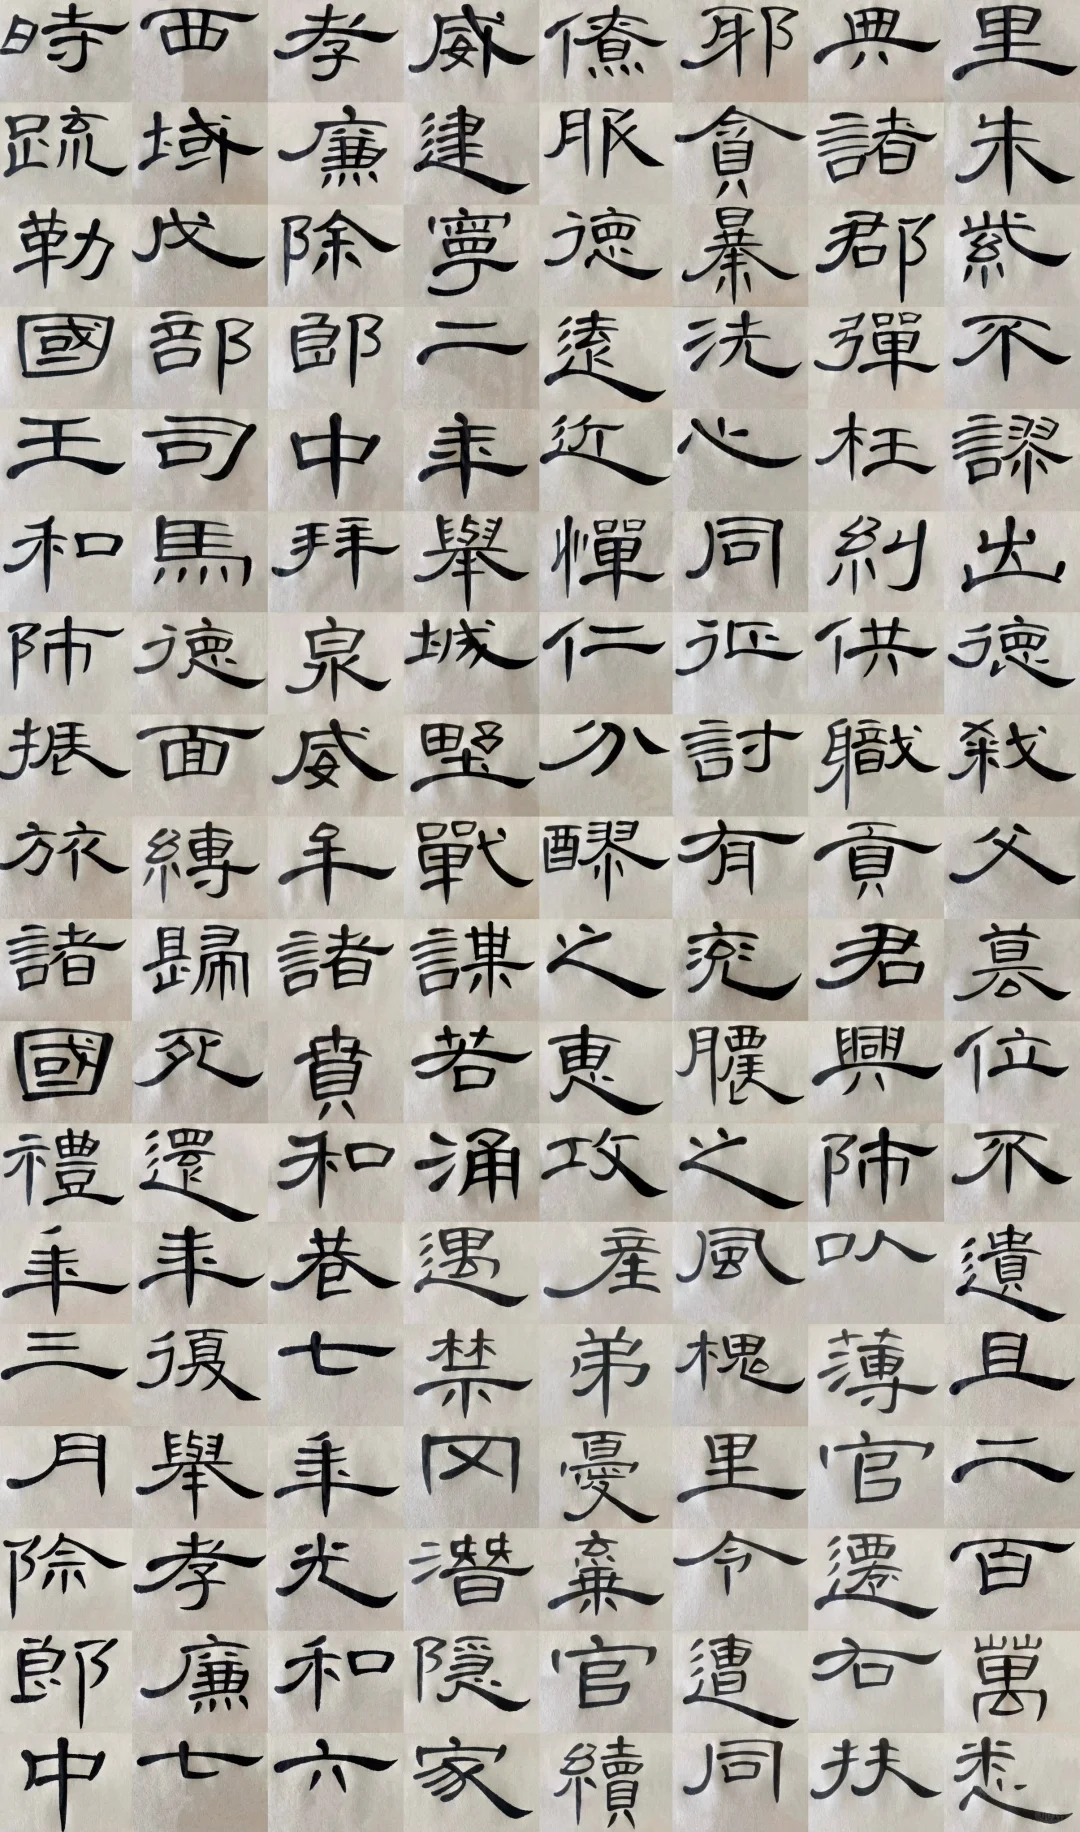 里朱紫不謬出
典諸郡彈枉糾
邪貪暴洗心同
僚服德遠近憚
威建寧二年舉
孝廉除郎中拜
西域戊部司馬
時疏勒國王和
德弒父篡位不
供職貢君興師
征討有兗膿之
仁分醪之惠攻
城野戰謀若涌
泉威牟諸賁和
德面縛歸死還
師振旅諸國禮
遺且二百萬悉
以薄官遷右扶
風槐里令遭同
產弟憂棄官續
遇禁网潛隱家
巷七年光和六
年復舉孝廉七
年三月除郎中